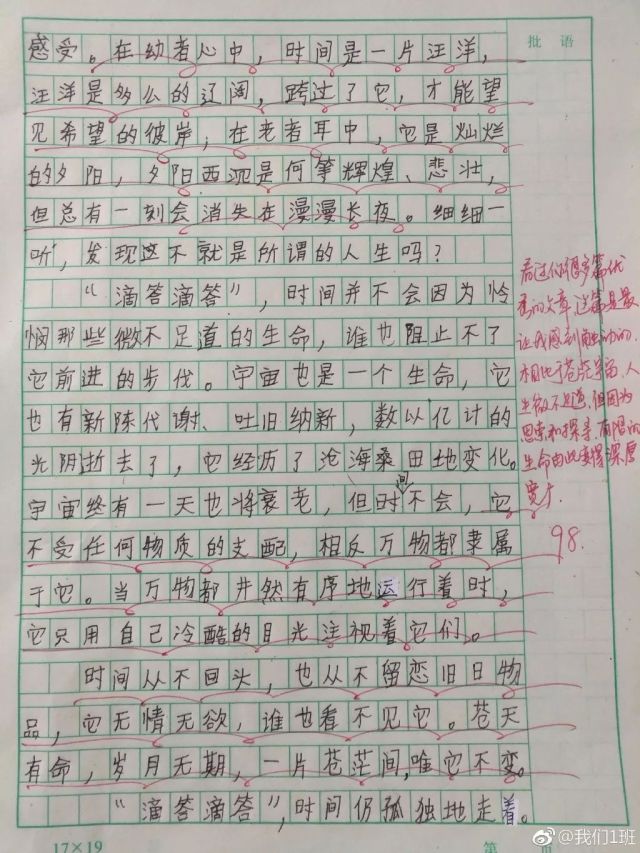 批语
感受。在幼者心中，时间是一片汪洋，
汪洋是多么的辽阔，跨过了它，才能望
见希望的彼岸；在老者耳中，它是灿烂
的夕阳，夕阳西沉是何等辉煌、悲壮，
但总有一刻会消失在漫漫长夜。细细一
听，发现这不就是所谓的人生吗？
“滴答滴答”，时间并不会因为怜
悯那些微不足道的生命，谁也阻止不了
它前进的步伐。宇宙也是一个生命，它
也有新陈代谢、吐旧纳新，数以亿计的
光阴逝去了，它经历了沧海桑田地变化。
宇宙终有一天也将衰老，但时间不会，它
不受任何物质的支配，相反万物都隶属
于它。当万物都井然有序地运行着时，
它只用自己冷酷的目光注视着它们。
时间从不回头，也从不留恋旧日物
品，它无情无欲，谁也看不见它。苍天
有命，岁月无期，一片苍茫间，唯它不变。
“滴答滴答”，时间仍孤独地走着。
看过你很多篇优
秀的文章，这篇是最
让我感到触动的.
相比于苍茫宇宙，人
生微不足道，但因为
思索和探寻，有限的
生命由此变得深厚
宽广.
98.
17×19
第 页
@我们1班